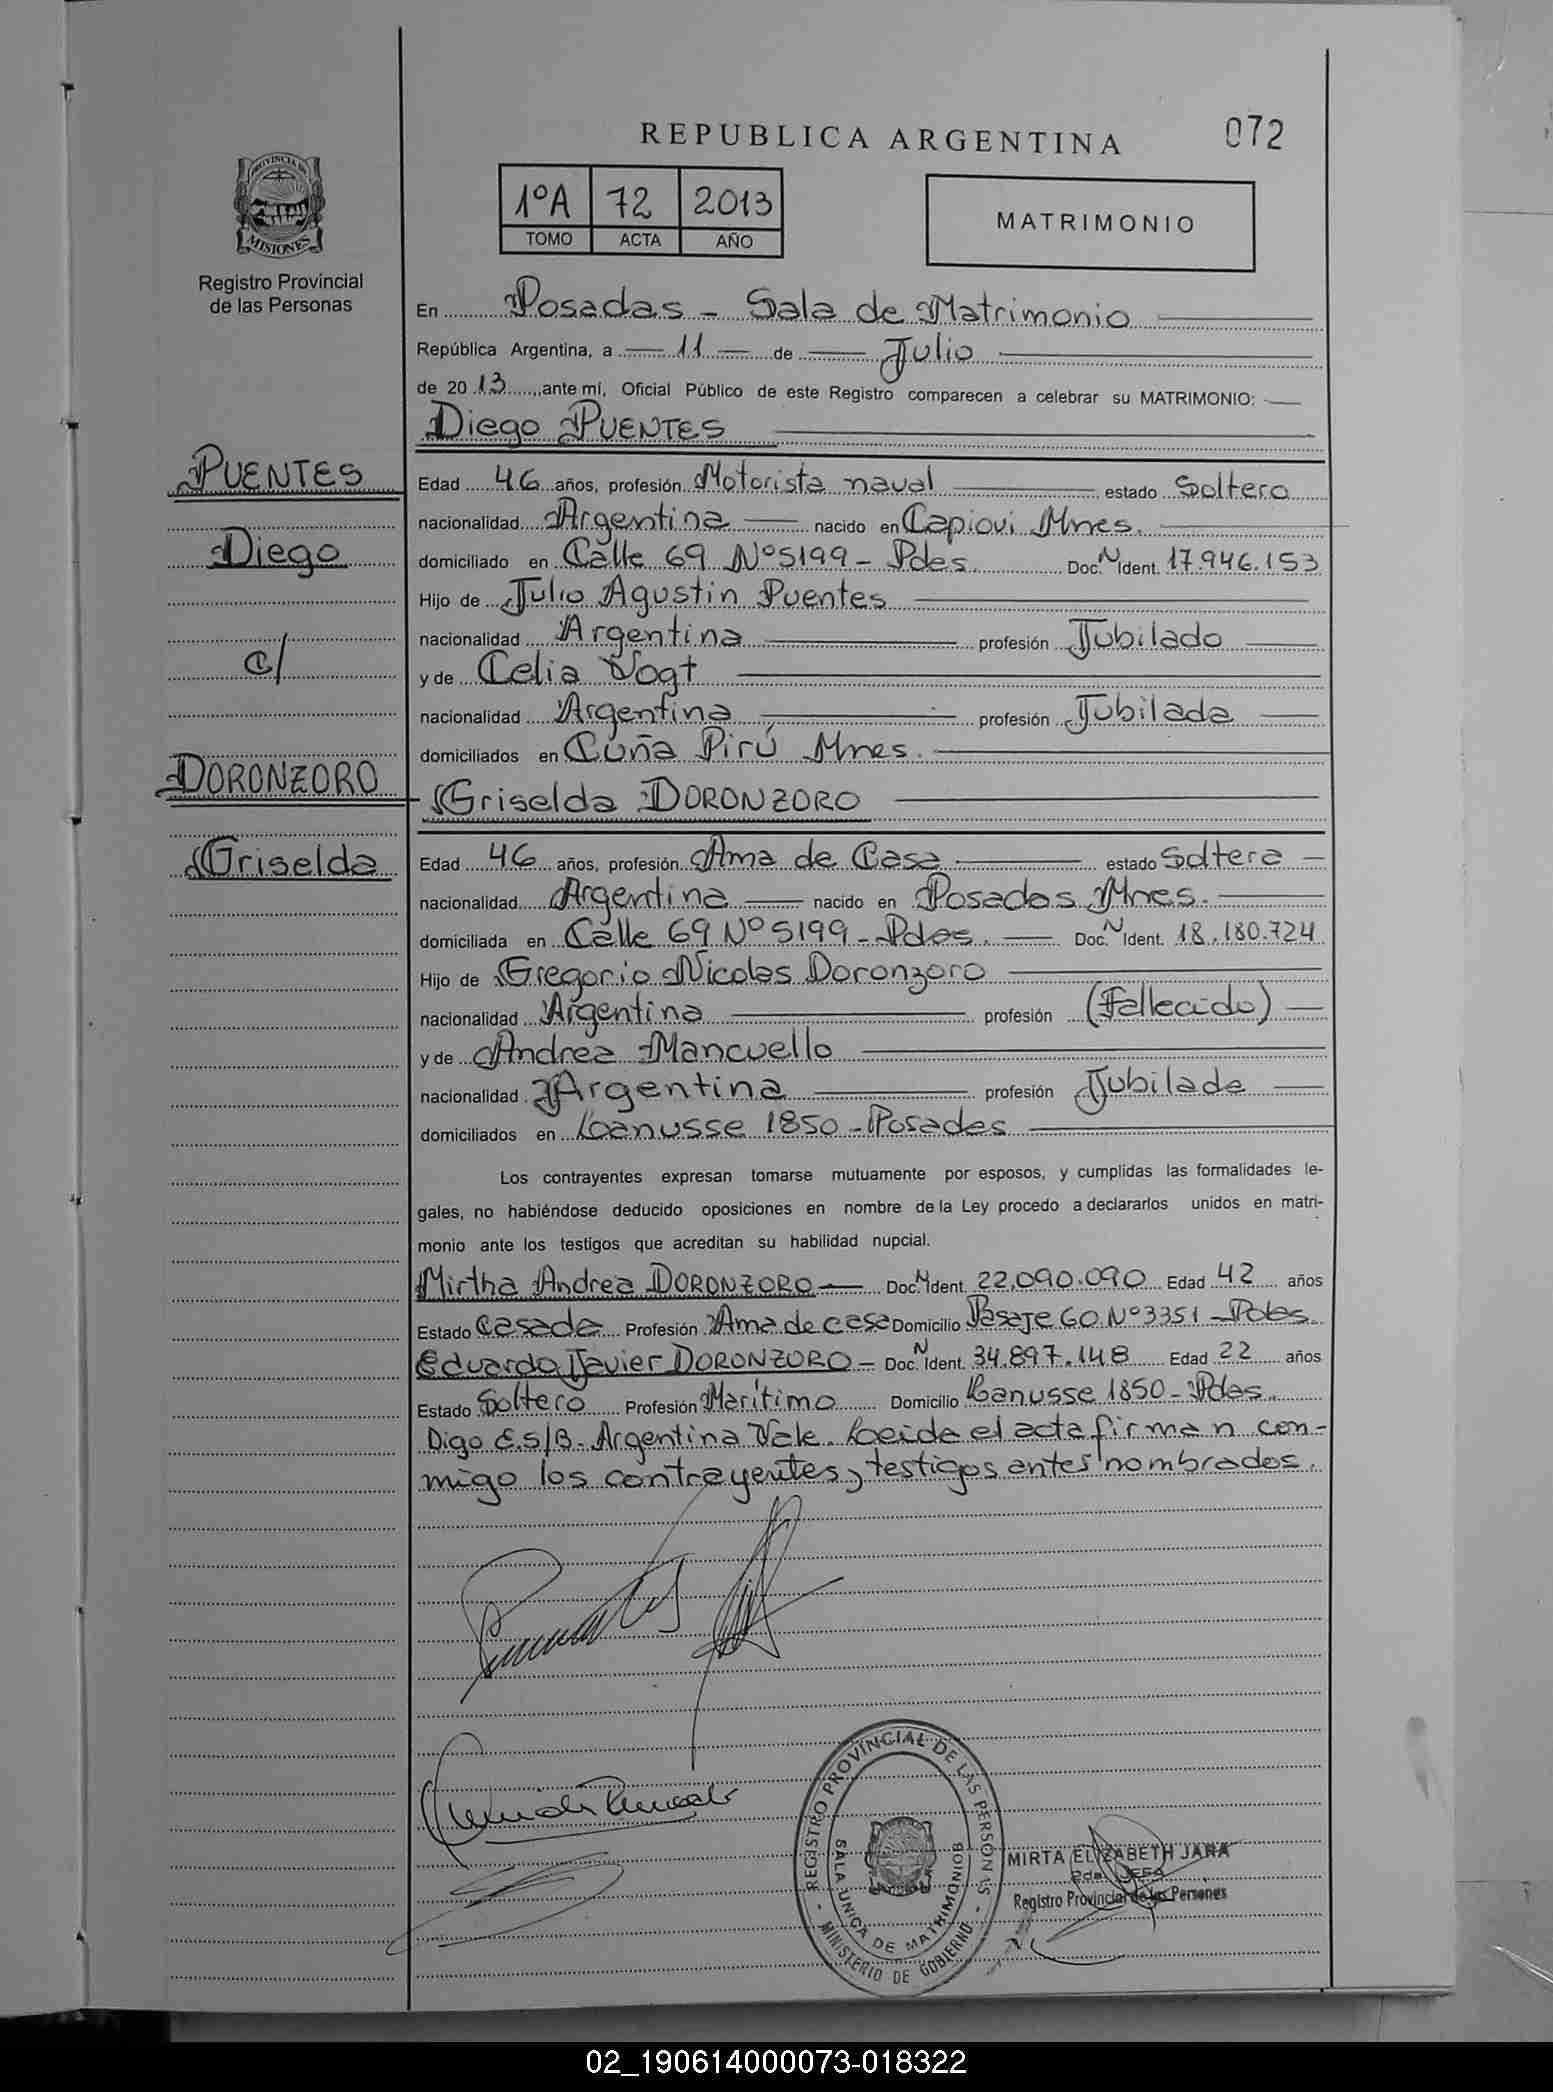 REPUBLICA ARGENTINA
072
PROVINCIA DE
MISIONES
Registro Provincial
de las Personas
1ºA 72 2013
TOMO ACTA AÑO
MATRIMONIO
En Posadas - Sala de Matrimonio
República Argentina, a 11 de Julio
de 2013 ante mí, Oficial Público de este Registro comparecen a celebrar su MATRIMONIO:
Diego PUENTES
PUENTES
Diego
c/
DORONZORO
Griselda
Edad 46 años, profesión Motorista naval estado Soltero
nacionalidad Argentina nacido en Capiovi Mnes.
domiciliado en Calle 69 Nº 5199 - Pdes. Doc. N Ident. 17.946.153
Hijo de Julio Agustin Puentes
nacionalidad Argentina profesión Jubilado
y de Celia Vogt
nacionalidad Argentina profesión Jubilada
domiciliados en Cuña Pirú Mnes.
Griselda DORONZORO
Edad 46 años, profesión Ama de Casa estado Soltera
nacionalidad Argentina nacido en Posadas Mnes.
domiciliada en Calle 69 Nº 5199 - Pdes. Doc. N Ident. 18.180.724
Hijo de Gregorio Nicolas Doronzoro
nacionalidad Argentina profesión (Fallecido)
y de Andrea Mancuello
nacionalidad Argentina profesión Jubilada
domiciliados en Lanusse 1850 - Posadas
Los contrayentes expresan tomarse mutuamente por esposos, y cumplidas las formalidades le-
gales, no habiéndose deducido oposiciones en nombre de la Ley procedo a declararlos unidos en matri-
monio ante los testigos que acreditan su habilidad nupcial.
Mirtha Andrea DORONZORO Doc. N Ident. 22.090.090 Edad 42 años
Estado Casada Profesión Ama de casa Domicilio Pasaje 60 Nº 3351 - Pdas.
Eduardo Javier DORONZORO - Doc. N Ident. 34.897.148 Edad 22 años
Estado Soltero Profesión Marítimo Domicilio Lanusse 1850 - Pdas.
Digo E.S/B. Argentina Vale. Leida el acta firman con-
migo los contrayentes y testigos antes nombrados.
REGISTRO PROVINCIAL DE LAS PERSONAS
SALA UNICA DE MATRIMONIOS
- MINISTERIO DE GOBIERNO -
MIRTA ELIZABETH JARA
2da. JEFA
Registro Provincial de las Personas
02_190614000073-018322